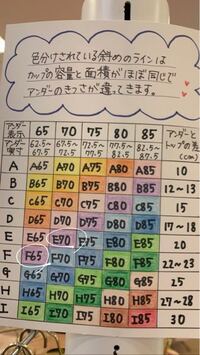 色分けされている斜めのラインは
カップの容量と面積がほぼ同じで
アンダーのきつさが違ってきます。
アンダー表示 65 70 75 80 85 アンダーとトップの差(cm)
アンダー実寸 62.5~67.5 67.5~72.5 72.5~77.5 77.5~82.5 82.5~87.5
A A65 A70 A75 A80 A85 10
B B65 B70 B75 B80 B85 12~13
C C65 C70 C75 C80 C85 15
D D65 D70 D75 D80 D85 17~18
E E65 E70 E75 E80 E85 20
F F65 F70 F75 F80 F85 22~23
G G65 G70 G75 G80 G85 25
H H65 H70 H75 H80 H85 27~28
I I65 I70 I75 I80 I85 30